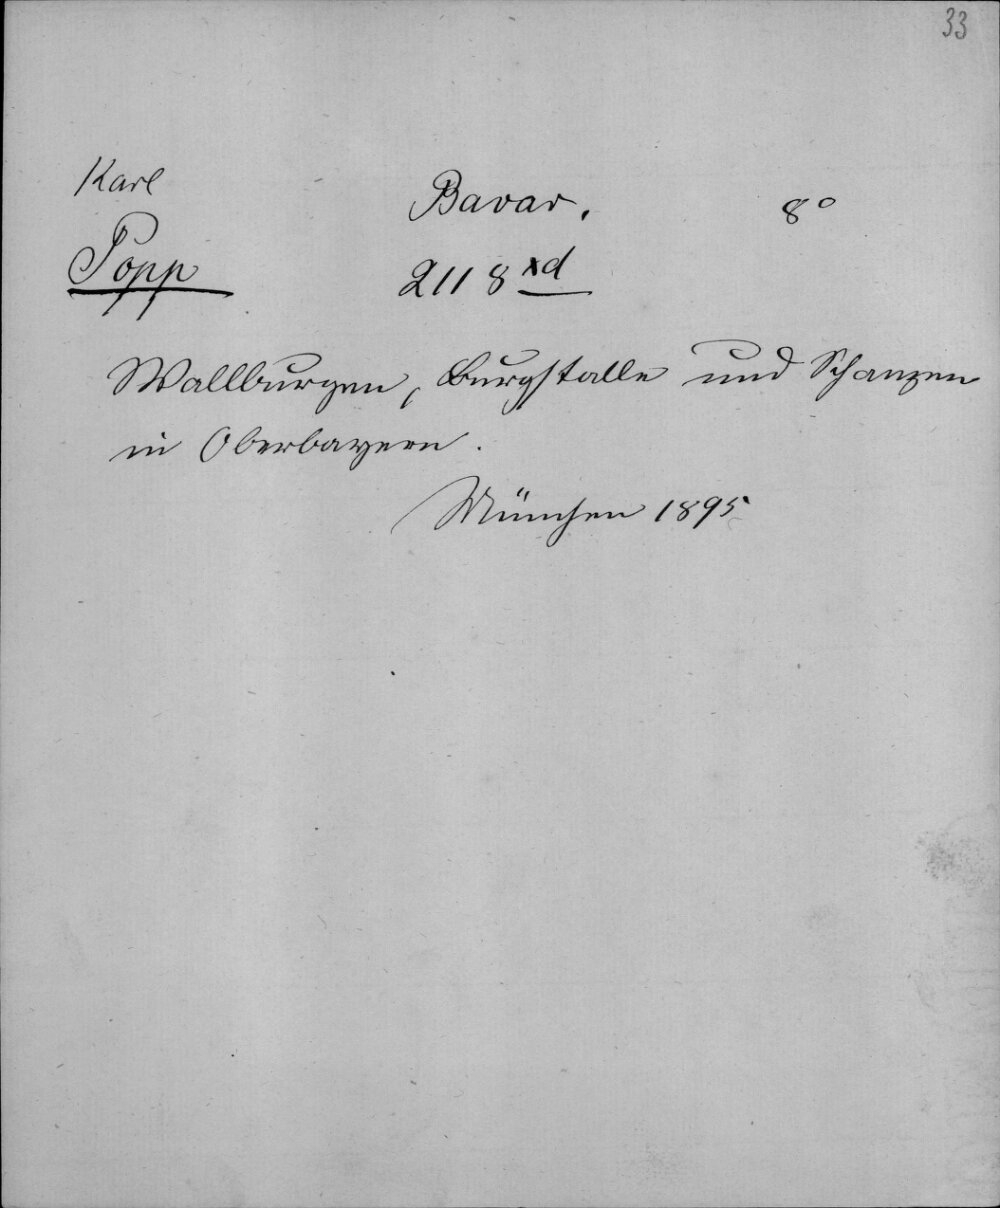 33
Karl
Bavar. 8°
Popp
2118 xd
Wallburgen, Burgstalle und Schanzen
in Oberbayern.
München 1895